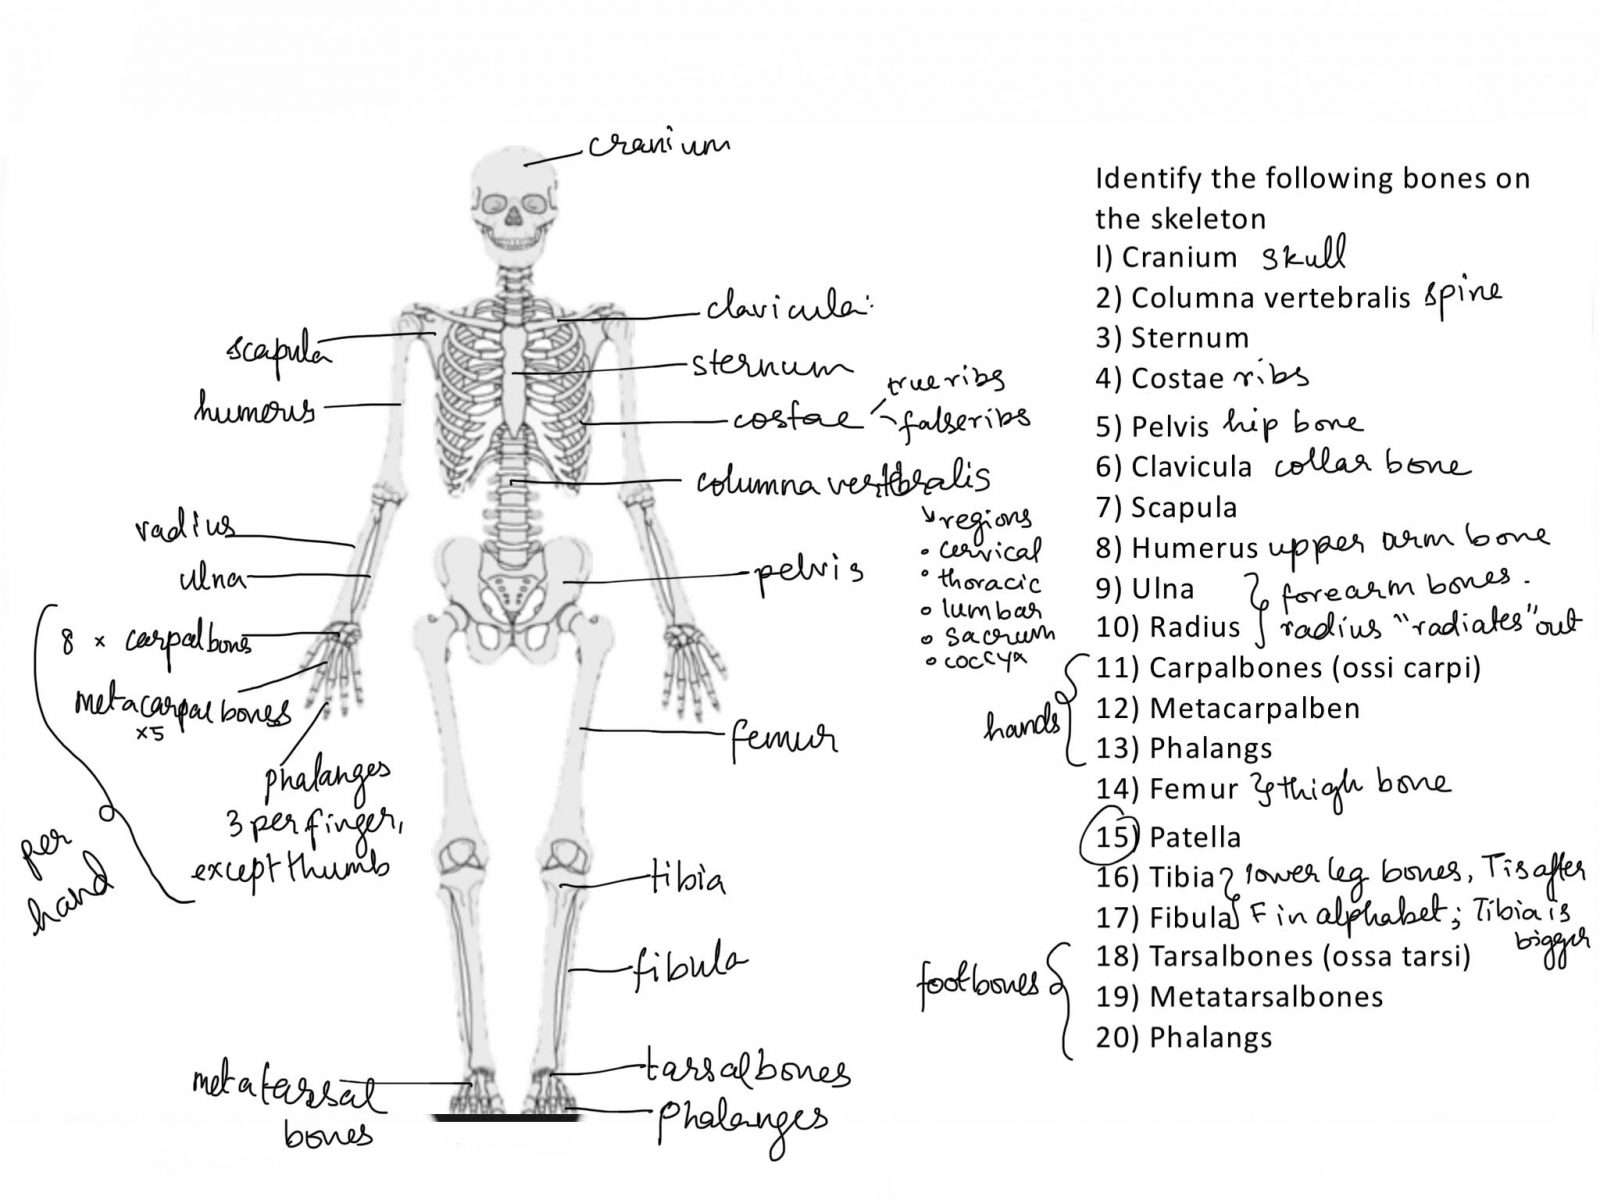 cranium
clavicula:
scapula
sternum
true ribs
humerus
costae
false ribs
columna vertebralis
regions
• cervical
• thoracic
• lumbar
• sacrum
• coccyx
radius
ulna
pelvis
8 × carpal bones
metacarpal bones
×5
phalanges
3 per finger,
except thumb
per
hand
femur
tibia
fibula
metatarsal
bones
tarsal bones
phalanges
Identify the following bones on
the skeleton
l) Cranium skull
2) Columna vertebralis spine
3) Sternum
4) Costae ribs
5) Pelvis hip bone
6) Clavicula collar bone
7) Scapula
8) Humerus upper arm bone
9) Ulna } forearm bones.
10) Radius } radius "radiates" out
hands {
11) Carpalbones (ossi carpi)
12) Metacarpalben
13) Phalangs
14) Femur } thigh bone
15) Patella
16) Tibia } lower leg bones, T is after
17) Fibula } F in alphabet; Tibia is
bigger
foot bones {
18) Tarsalbones (ossa tarsi)
19) Metatarsalbones
20) Phalangs